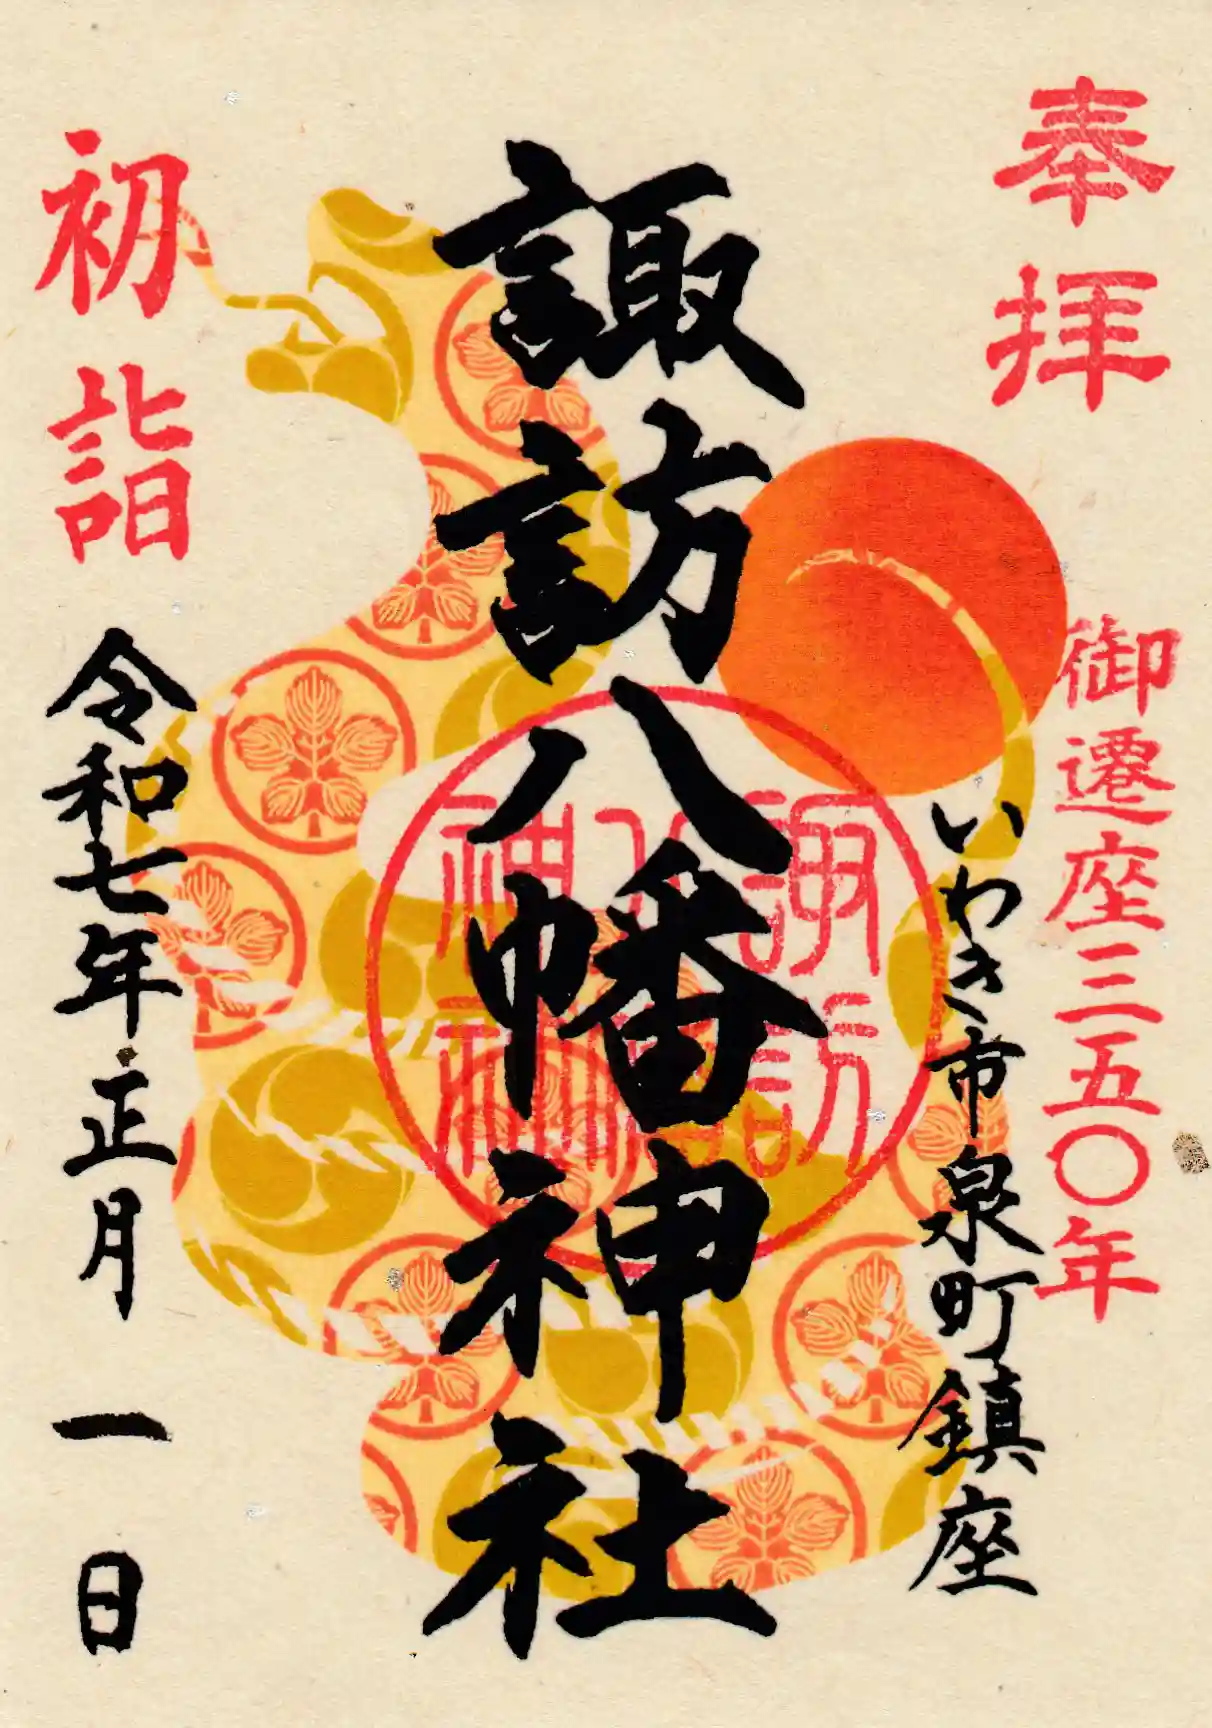 奉拝
御遷座三五〇年
いわき市泉町鎮座
諏訪八幡神社
諏訪
八幡
神社
初詣
令和七年正月一日